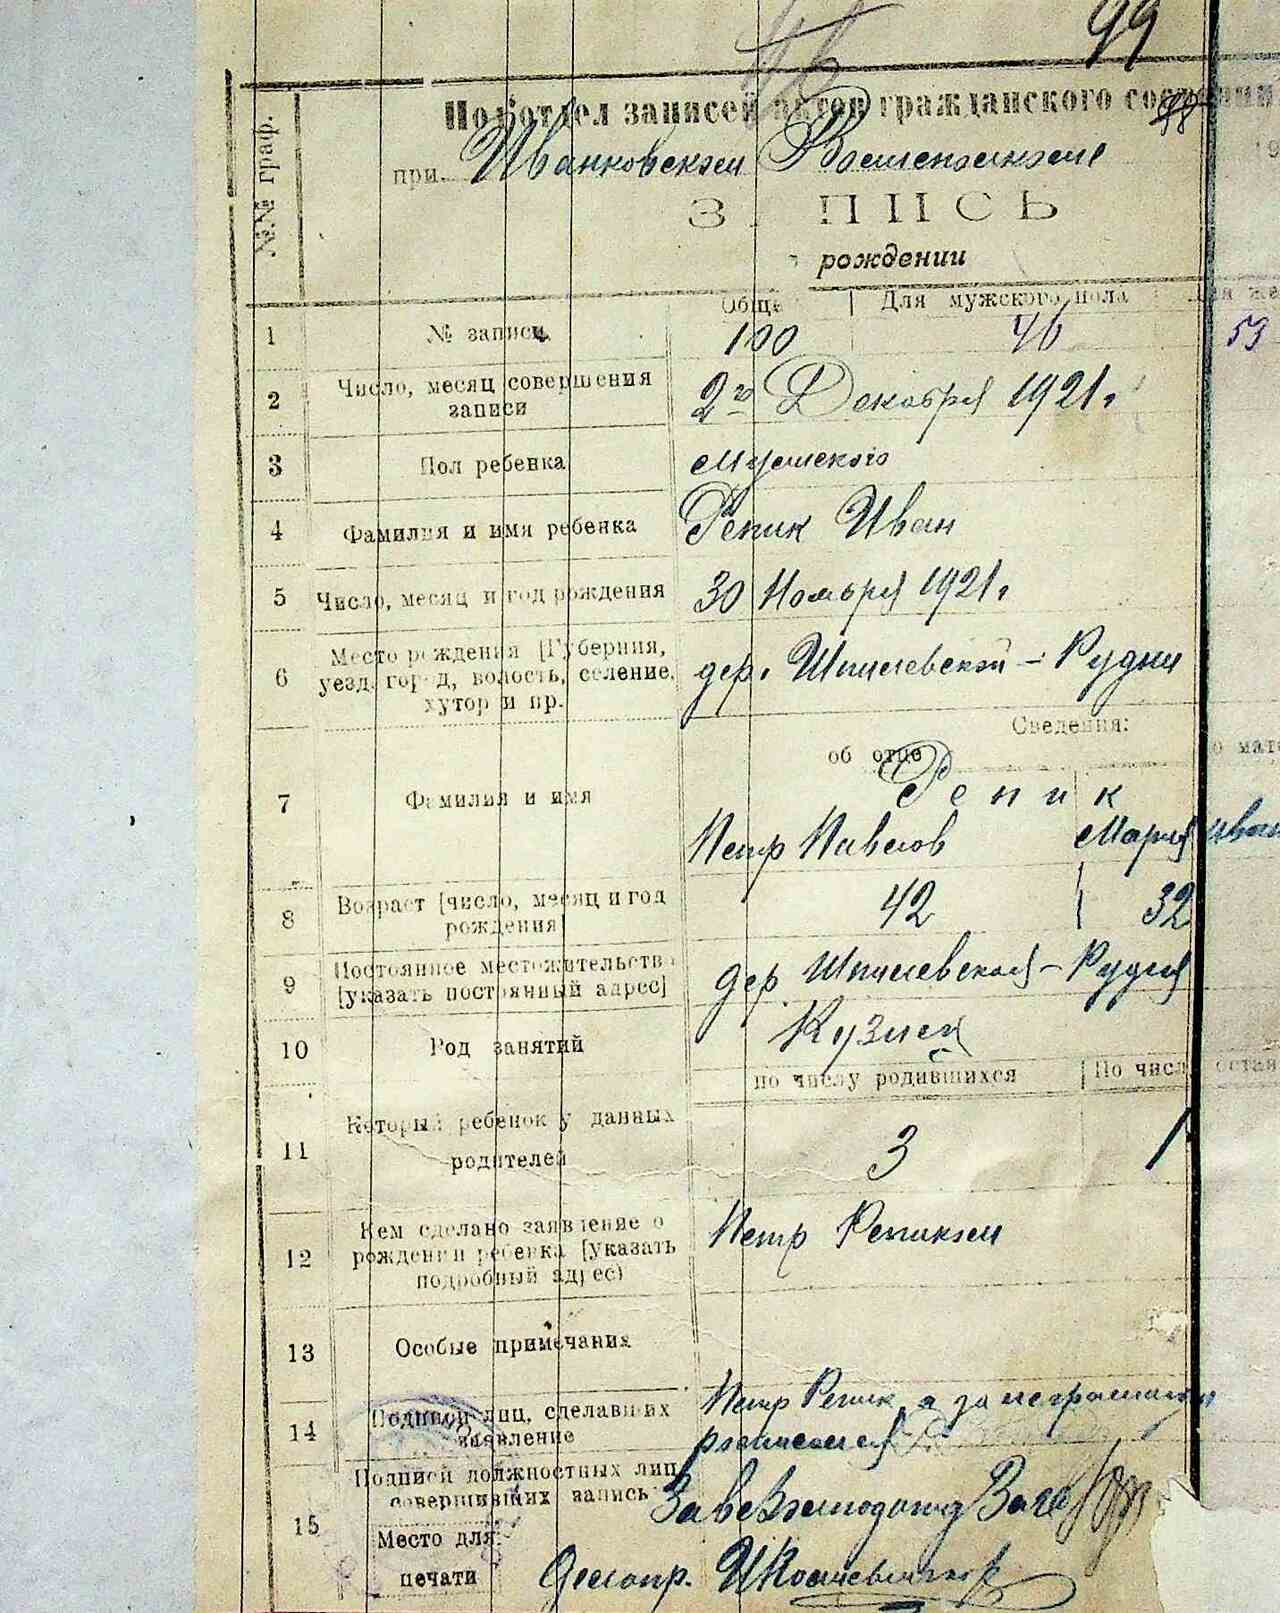 99
Подотдел записей актов гражданского состояния
при Иванковском Волисполкоме 19
88
№№ граф.
ЗАПИСЬ
о рождении
Общий Для мужского пола Для же
1 № записи 100 46 53
2 Число, месяц совершения записи 2го Декабря 1921г.
3 Пол ребенка мужского
4 Фамилия и имя ребенка Репик Иван
5 Число, месяц и год рождения 30 Ноября 1921г.
6 Место рождения [Губерния, уезд, город, волость, селение, хутор и пр. дер. Шпилевской - Рудни
Сведения:
об отце о мате
7 Фамилия и имя Репик
Петр Павлов Мария Иван
8 Возраст [число, месяц и год рождения] 42 32
9 Постоянное местожительство [указать постоянный адрес] дер Шпилевская - Рудня
10 Род занятий Кузнец
по числу родившихся По числу остав
11 Который ребенок у данных родителей 3 1
12 Кем сделано заявление о рождении ребенка [указать подробный адрес) Петр Репиком
13 Особые примечания
14 Подписи лиц, сделавших заявление Петр Репик, а за неграмотн
расписался
15 Подписи должностных лиц, совершивших запись
Место для печати
Делопр.